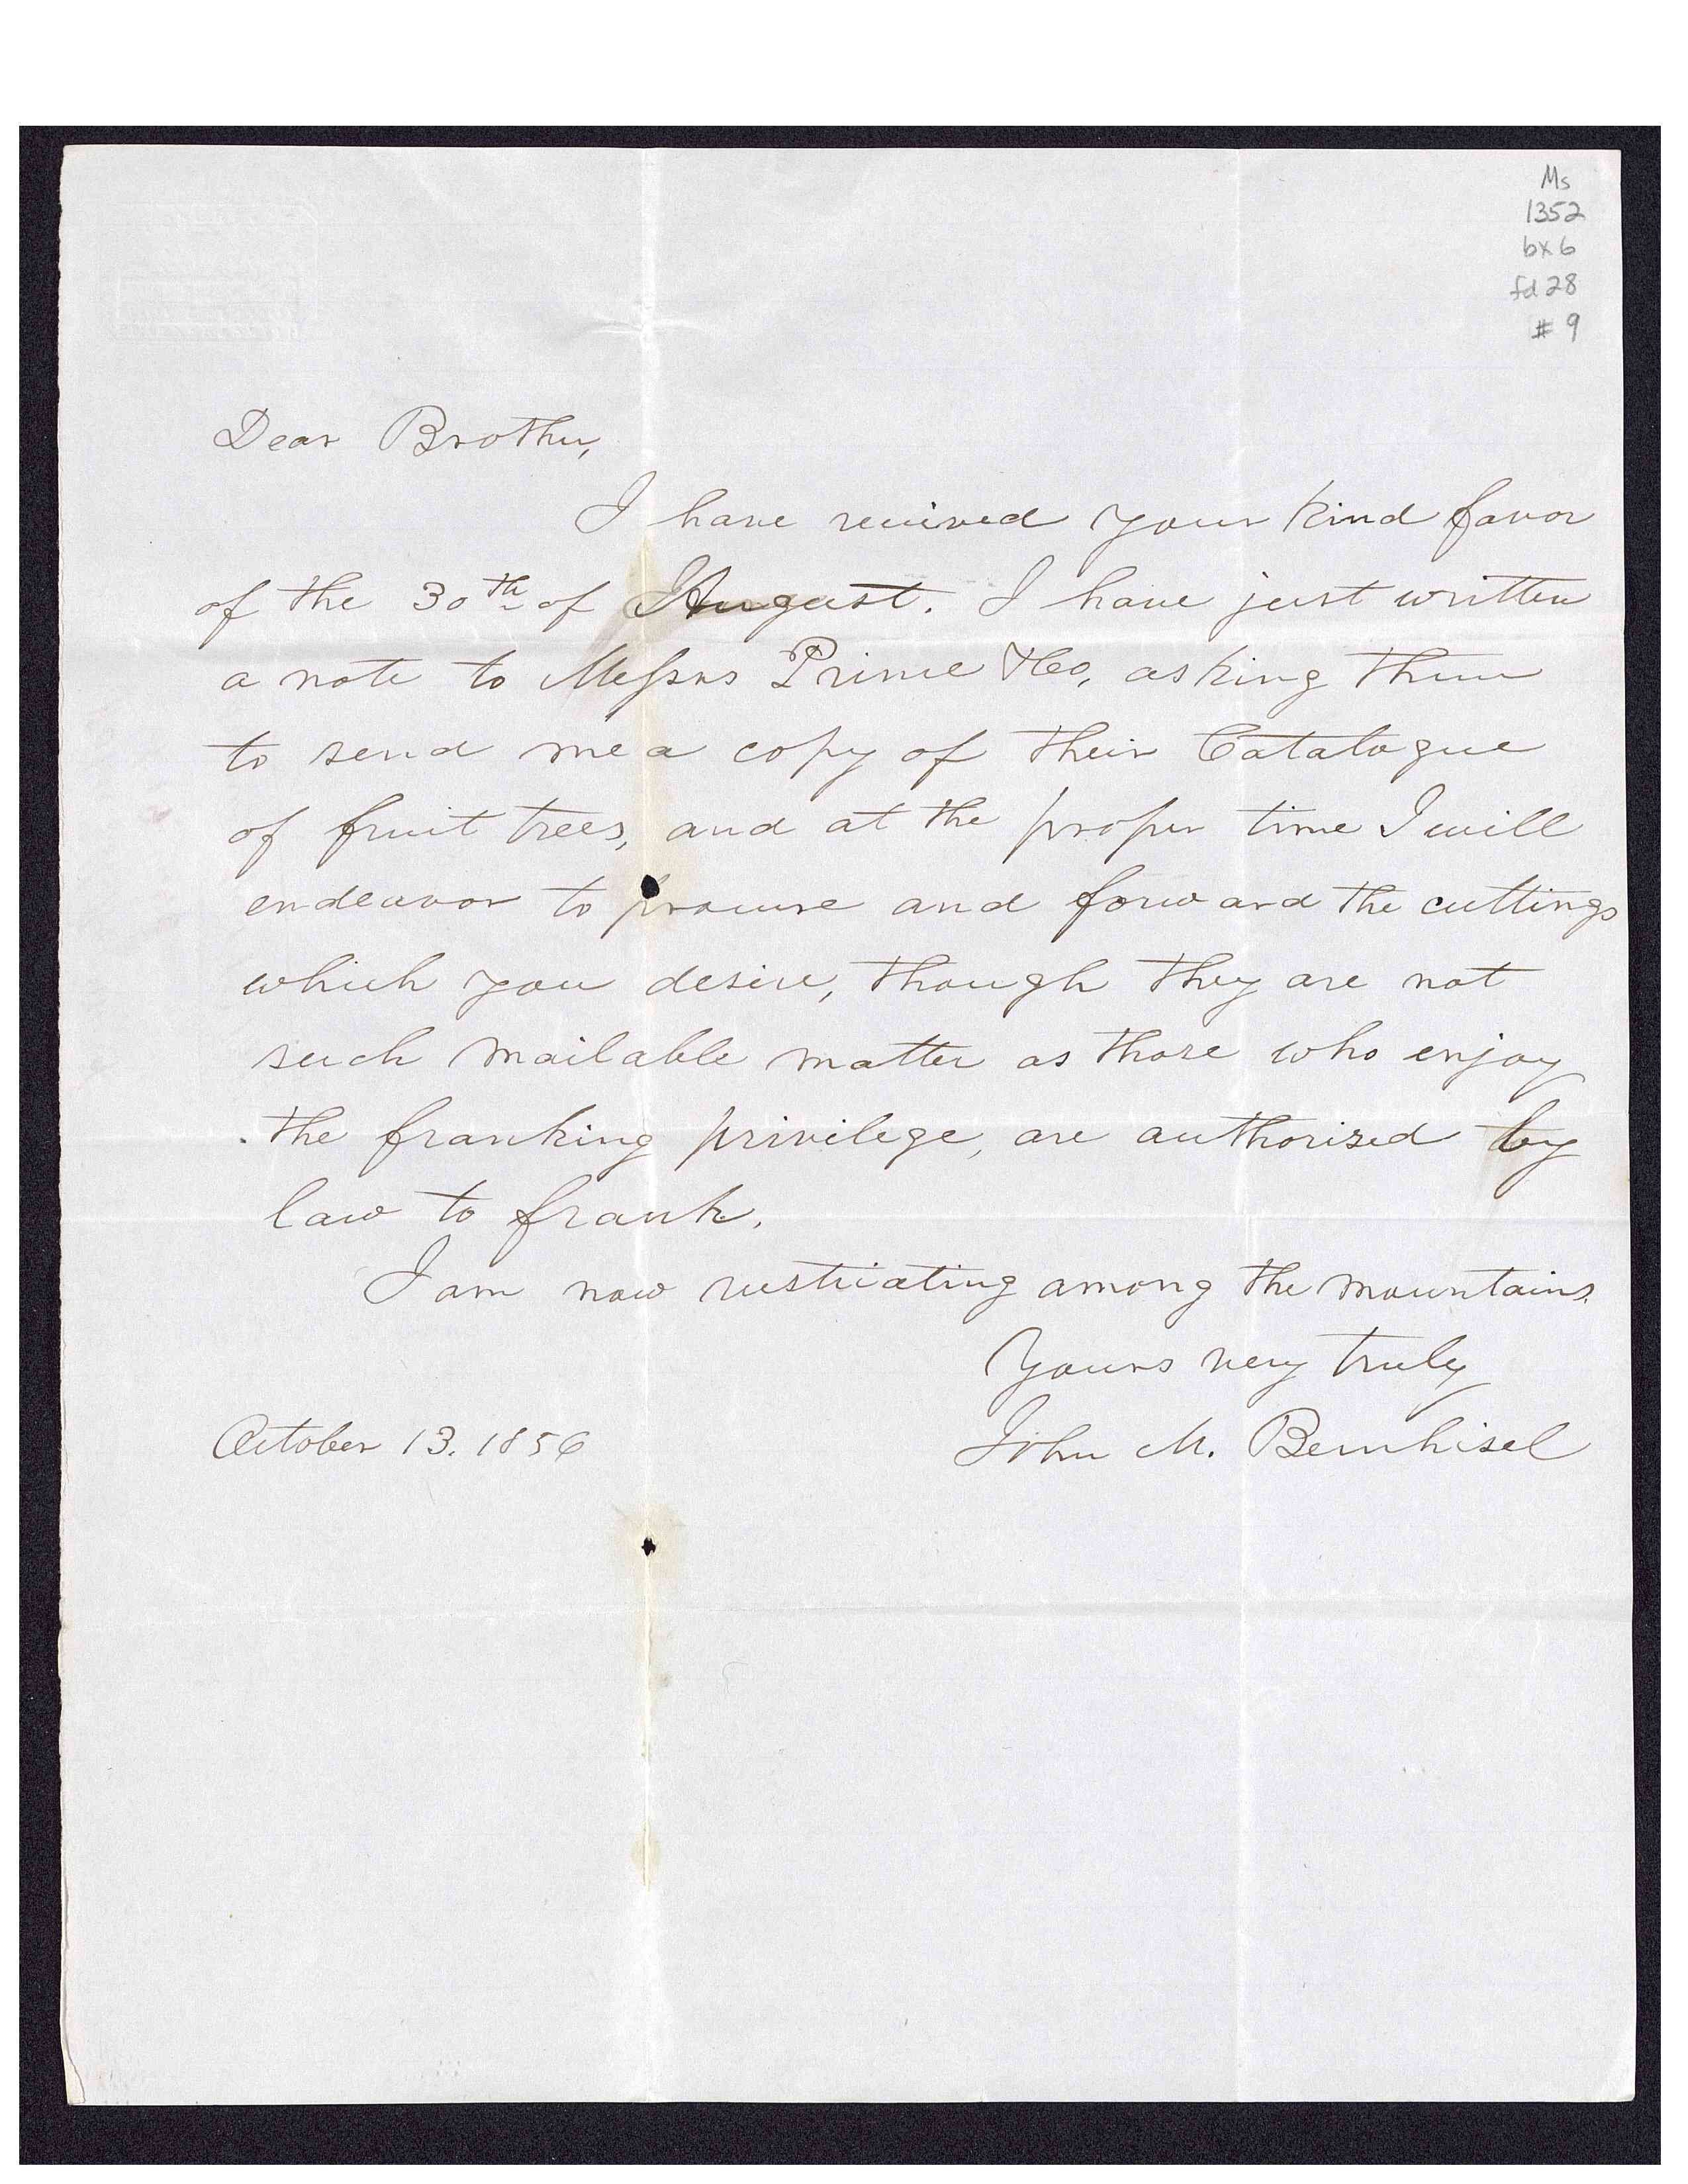 Ms
1352
bx 6
fd 28
# 9
Dear Brother,
I have received your kind favor
of the 30th of August. I have just written
a note to Messrs Prince & Co, asking them
to send me a copy of their Catalogue
of fruit trees, and at the proper time I will
endeavor to procure and forward the cuttings
which you desire, though they are not
such mailable matter as those who enjoy
the franking privilege, are authorised by
law to frank.
I am now rusticating among the mountains.
Yours very truly
John M. Bernhisel
October 13. 1856